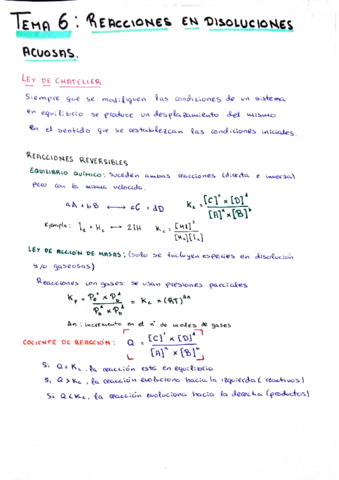 TEMA 6: REACCIONES EN DISOLUCIONES
ACUOSAS.
LEY DE CHATELIER
Siempre que se modifiquen las condiciones de un sistema
en equilibrio se produce un desplazamiento del mismo
en el sentido que se restablezcan las condiciones iniciales.
REACCIONES REVERSIBLES
EQUILIBRIO QUÍMICO: Suceden ambas reacciones (directa e inversa)
pero con la misma velocidad.
aA + bB ⟷ cC + dD    Kc = [C]^c x [D]^d / [A]^a x [B]^b
Ejemplo: I2 + H2 ⟷ 2IH    Kc = [HI]^2 / [H2][I2]
LEY DE ACCIÓN DE MASAS: (solo se incluyen especies en disolución
y/o gaseosas)
Reacciones con gases: se usan presiones parciales
Kp = Pc^c x PD^d / PA^a x Pb^b = Kc x (RT)^Δn
Δn: incremento en el nº de moles de gases
COCIENTE DE REACCIÓN: Q = [C]^c x [D]^d / [A]^a x [B]^b
Si Q = Kc, la reacción está en equilibrio
Si Q > Kc, la reacción evoluciona hacia la izquierda (reactivos)
Si Q < Kc, la reacción evoluciona hacia la derecha (productos)